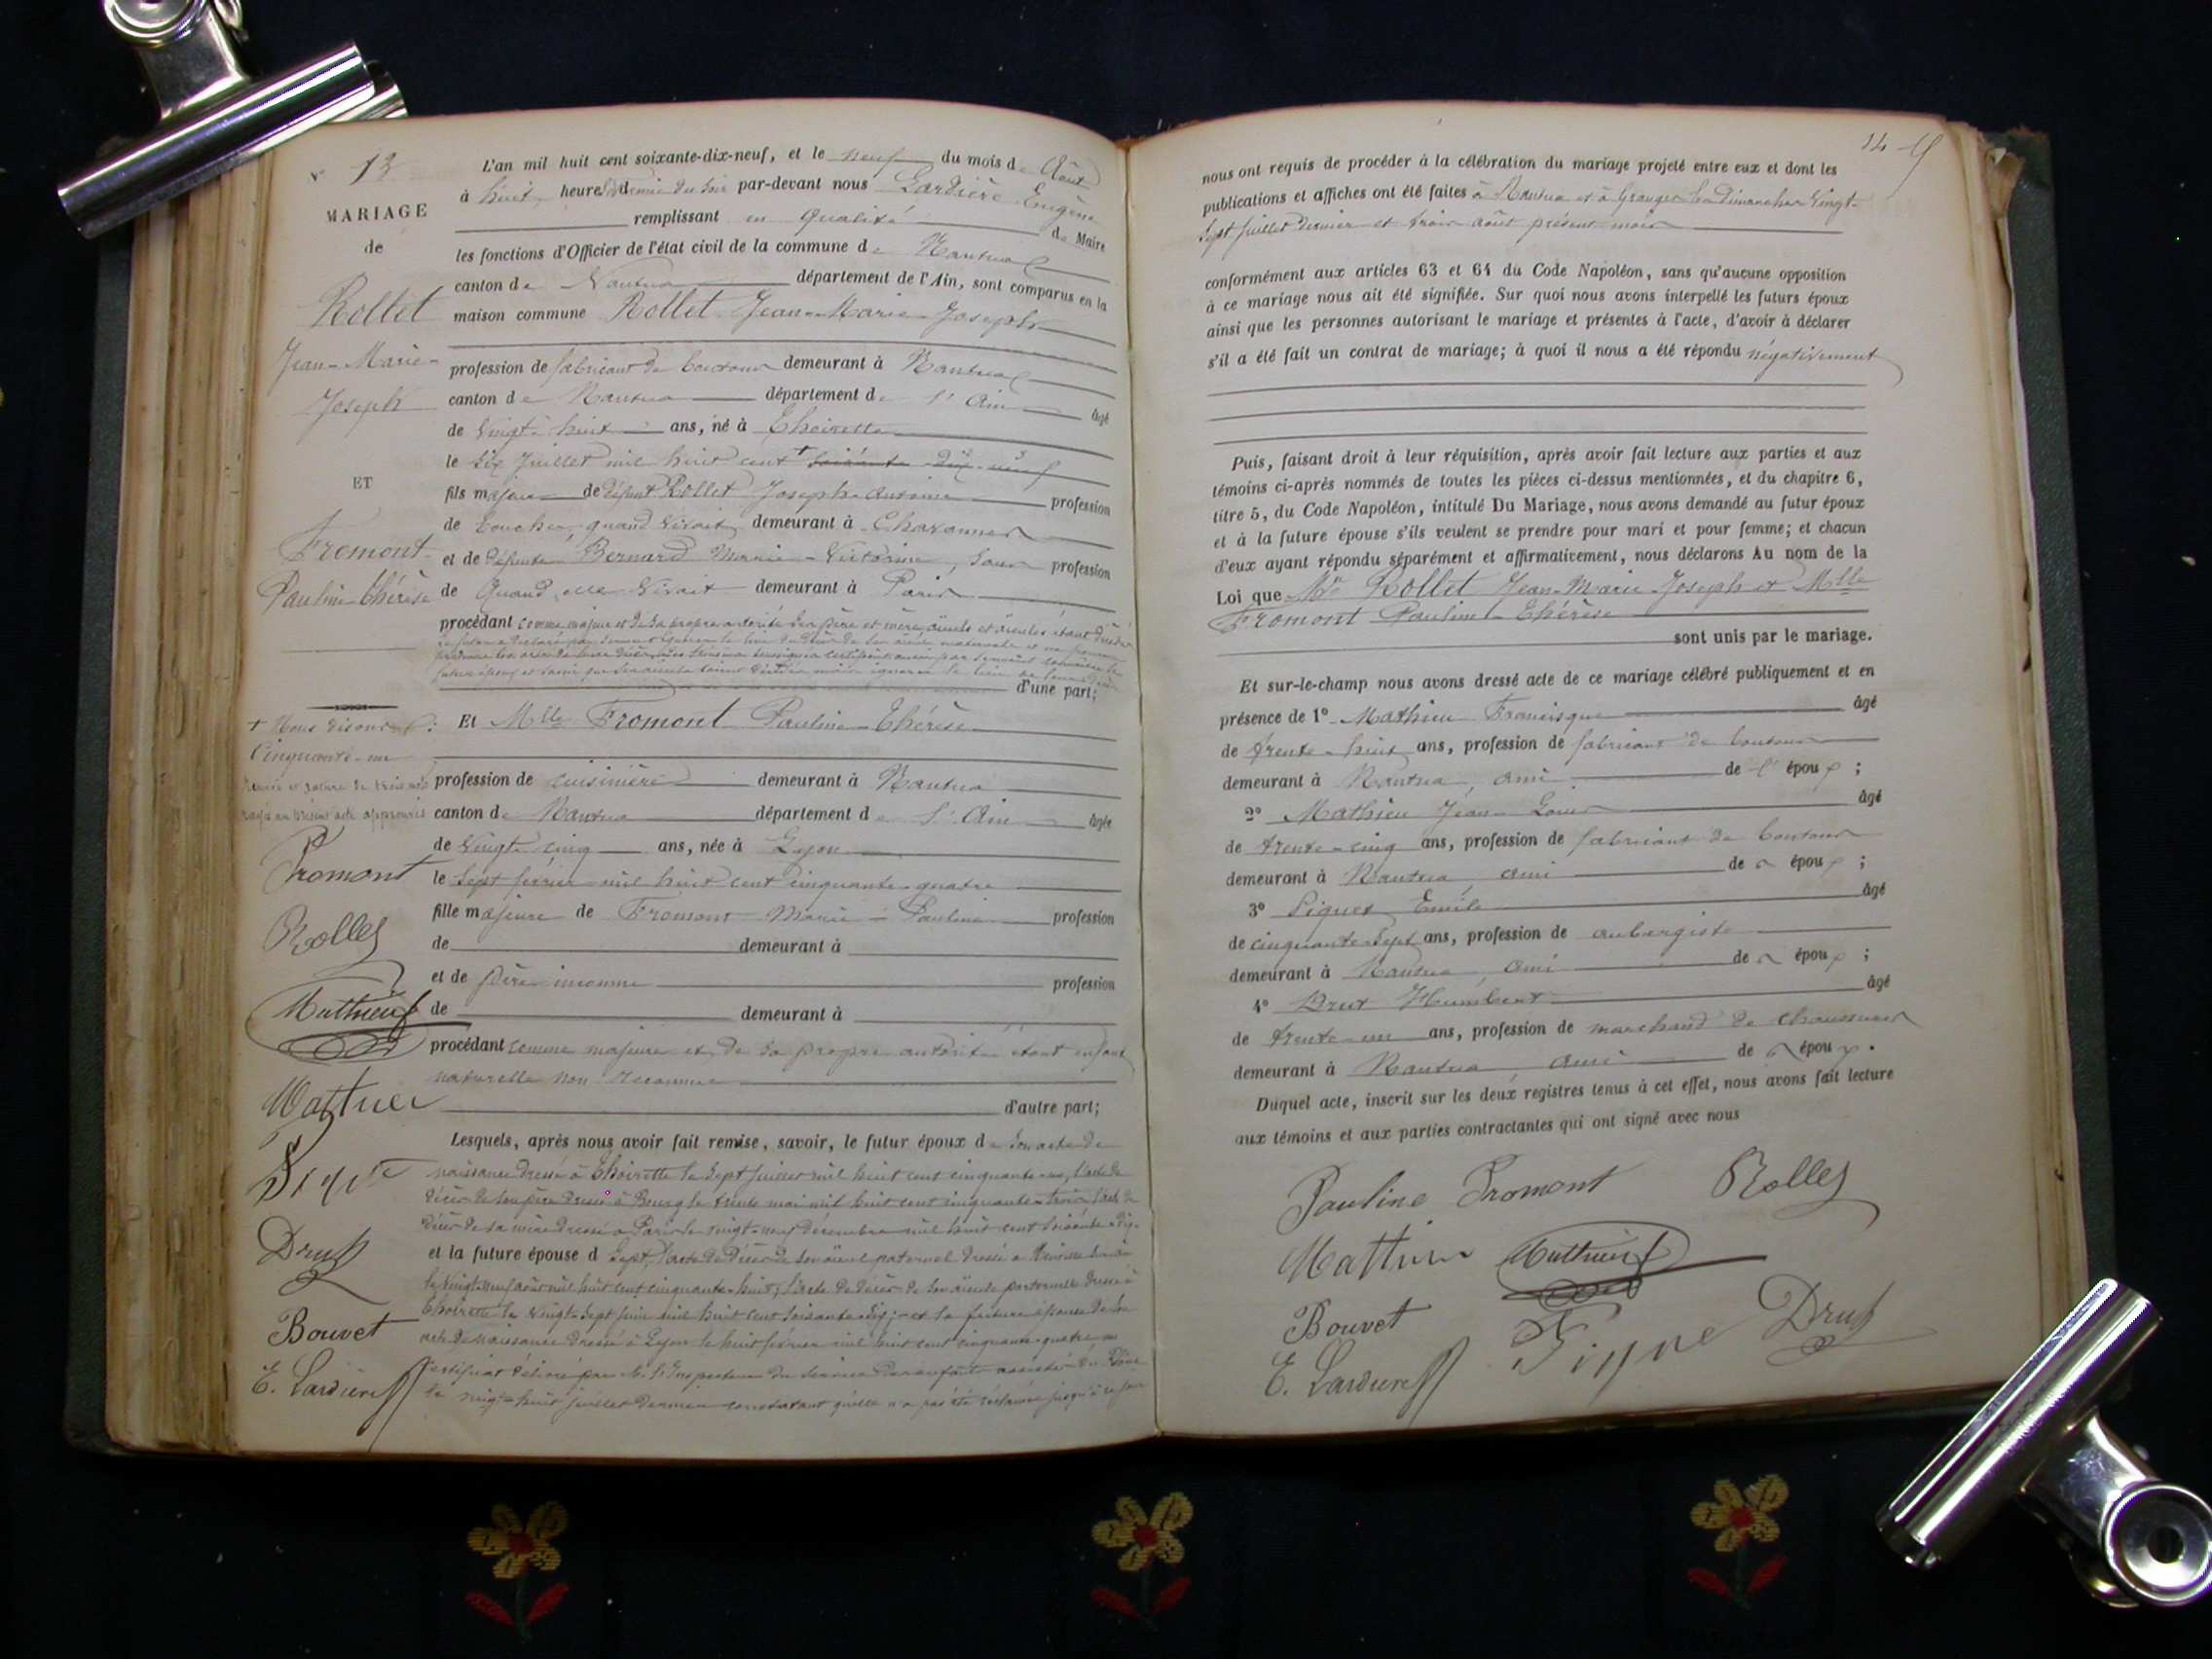 N° 13
MARIAGE
de
Rollet
Jean-Marie-
Joseph
ET
Fromont
Pauline Thérèse
+ Nous disons :
Cinquante-un
Fromont
Rollet
Mathieu
Mathieu
Drut
Bouvet
E. Lardière
L'an mil huit cent soixante-dix-neuf, et le neuf du mois d'Août
à huit heures et demie du soir par-devant nous Lardière Eugène
remplissant en qualité de Maire
les fonctions d'Officier de l'état civil de la commune de Nantua
canton de Nantua département de l'Ain, sont comparus en la
maison commune Rollet Jean-Marie-Joseph
profession de fabricant de boutons demeurant à Nantua
canton de Nantua département de l'Ain âgé
de vingt-huit ans, né à Thoirette
le six Juillet mil huit cent + soixante-dix-neuf
fils majeur de défunt Rollet Joseph-Antoine profession
de quand vivait demeurant à Chavannes
et de défunte Bernard Marie-Victorine, sans profession
de quand elle vivait demeurant à Paris
procédant comme majeur et de sa propre autorité ses père et mère, aïeuls et aïeules étant décédés
d'une part;
Et Mlle Fromont Pauline-Thérèse
profession de cuisinière demeurant à Nantua
canton de Nantua département de l'Ain âgée
de vingt-cinq ans, née à Lyon
le sept février mil huit cent cinquante-quatre
fille majeure de Fromont Marie-Pauline profession
de demeurant à
et de père inconnu profession
de demeurant à
procédant comme majeure et de sa propre autorité étant enfant
naturelle non reconnue
d'autre part;
Lesquels, après nous avoir fait remise, savoir, le futur époux de son acte de
naissance dressé à Thoirette le sept juillet mil huit cent cinquante-un, l'acte de
décès de son père dressé à Bourg le trente mai mil huit cent cinquante-trois, l'acte de
décès de sa mère dressé à Paris le vingt-neuf décembre mil huit cent soixante-dix-
et la future épouse d sept, l'acte de décès de son aïeul paternel dressé à
le vingt-neuf août mil huit cent cinquante-huit, l'acte de décès de son aïeule paternelle dressé à
Thoirette le vingt-sept juin mil huit cent soixante-dix; et la future épouse de son
acte de naissance dressé à Lyon le huit février mil huit cent cinquante-quatre
certificat délivré par M. l'Inspecteur du Service des enfants assistés du Rhône
le vingt-huit juillet dernier constatant qu'elle n'a pas été réclamée jusqu'à ce jour
14 9
nous ont requis de procéder à la célébration du mariage projeté entre eux et dont les
publications et affiches ont été faites à Nantua et à Granges les Dimanches vingt-
sept juillet dernier et trois août présent mois
conformément aux articles 63 et 64 du Code Napoléon, sans qu'aucune opposition
à ce mariage nous ait été signifiée. Sur quoi nous avons interpellé les futurs époux
ainsi que les personnes autorisant le mariage et présentes à l'acte, d'avoir à déclarer
s'il a été fait un contrat de mariage; à quoi il nous a été répondu négativement
Puis, faisant droit à leur réquisition, après avoir fait lecture aux parties et aux
témoins ci-après nommés de toutes les pièces ci-dessus mentionnées, et du chapitre 6,
titre 5, du Code Napoléon, intitulé Du Mariage, nous avons demandé au futur époux
et à la future épouse s'ils veulent se prendre pour mari et pour femme; et chacun
d'eux ayant répondu séparément et affirmativement, nous déclarons Au nom de la
Loi que Mr Rollet Jean-Marie-Joseph et Mlle
Fromont Pauline Thérèse
sont unis par le mariage.
Et sur-le-champ nous avons dressé acte de ce mariage célébré publiquement et en
présence de 1° Mathieu Francisque âgé
de trente-huit ans, profession de fabricant de boutons
demeurant à Nantua, ami de l'époux ;
2° Mathieu Jean-Louis âgé
de trente-cinq ans, profession de fabricant de boutons
demeurant à Nantua, ami de époux ;
3° Piquet Emile âgé
de cinquante-sept ans, profession de aubergiste
demeurant à Nantua, ami de époux ;
4° Drut Humbert âgé
de trente-un ans, profession de marchand de chaussures
demeurant à Nantua, ami de époux.
Duquel acte, inscrit sur les deux registres tenus à cet effet, nous avons fait lecture
aux témoins et aux parties contractantes qui ont signé avec nous
Pauline Fromont Rollet
Mathieu Mathieu
Bouvet Drut
E. Lardière